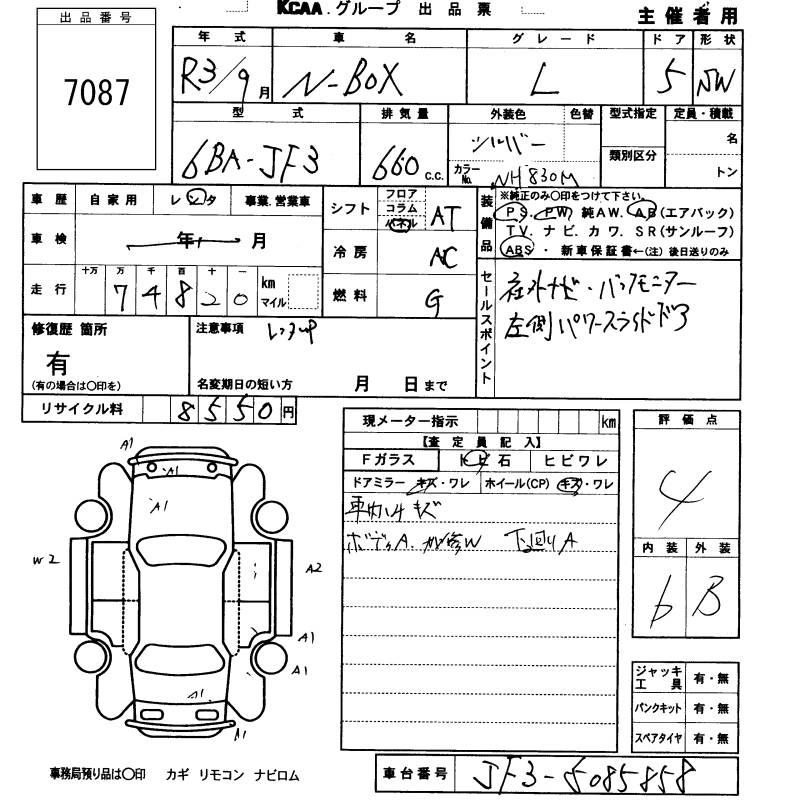 KCAA.グループ 出品票
主催者用
出品番号
7087
年式 車名 グレード ドア 形状
R3/9月 N-BOX L 5 SW
型式 排気量 外装色 色替 型式指定 定員・積載
6BA-JF3 660 C.C. シルバー 名
カラーNo. NH830M 類別区分 トン
車歴 自家用 レンタ 事業.営業車
シフト フロア コラム パネル AT
装備品 ※純正のみ○印をつけて下さい。
PS.PW 純AW.AB(エアバック)
TV.ナビ.カワ.SR(サンルーフ)
ABS・新車保証書←(注)後日送りのみ
車検 年 月
冷房 AC
走行 十万 万 千 百 十 一 km マイル
74820
燃料 G
セールスポイント
社外ナビ・バックモニター
左側パワースライドドア
修復歴 箇所
有
(有の場合は○印を)
注意事項 レンタUP
名変期日の短い方 月 日まで
リサイクル料 8550円
現メーター指示 km
【査定員記入】
Fガラス トビ石 ヒビワレ
ドアミラー キズ・ワレ ホイール(CP) キズ・ワレ
車内シートキズ
ボディA. 下回りA
評価点
4
内装 外装
b B
A1
A1
A1
W2
A2
A1
A1
A1
A1
ジャッキ工具 有・無
パンクキット 有・無
スペアタイヤ 有・無
事務局預り品は○印 カギ リモコン ナビロム
車台番号 JF3-5085858